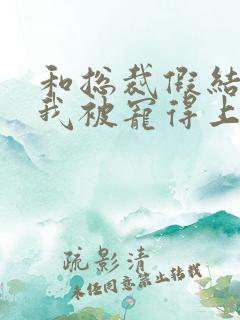 和总裁假结
我被宠得上
疏影清
未经同意禁止转载